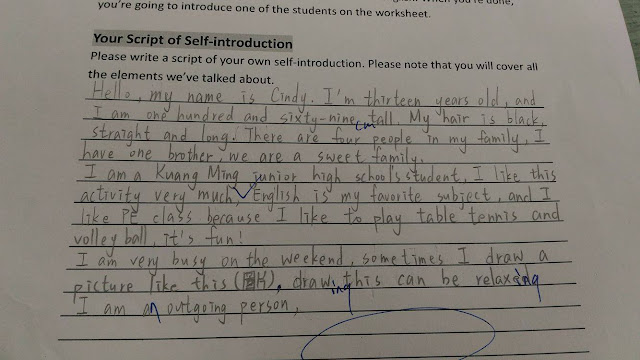 you're going to introduce one of the students on the worksheet.
Your Script of Self-introduction
Please write a script of your own self-introduction. Please note that you will cover all
the elements we've talked about.
Hello, my name is Cindy. I'm thirteen years old, and
I am one hundred and sixty-nine cm tall. My hair is black,
straight and long. There are four people in my family, I
have one brother, we are a sweet family.
I am a Kuang Ming junior high school's student, I like this
activity very much, English is my favorite subject, and I
like PE class because I like to play table tennis and
volley ball, it's fun!
I am very busy on the weekend, sometimes I draw a
picture like this (圖片), drawing this can be relaxing
I am an outgoing person,